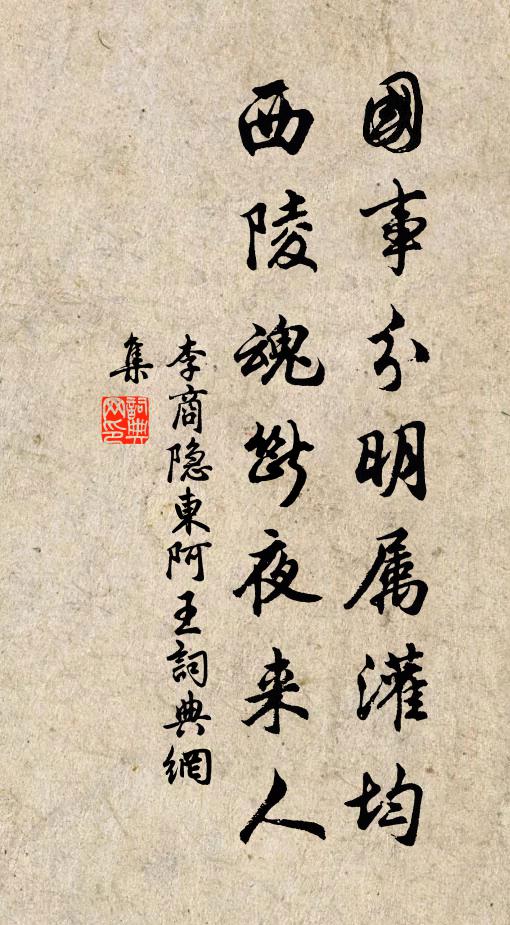 國事分明属灌均
西陵魂斷夜来人
李商隐東阿王詞典網
集
詞典网印